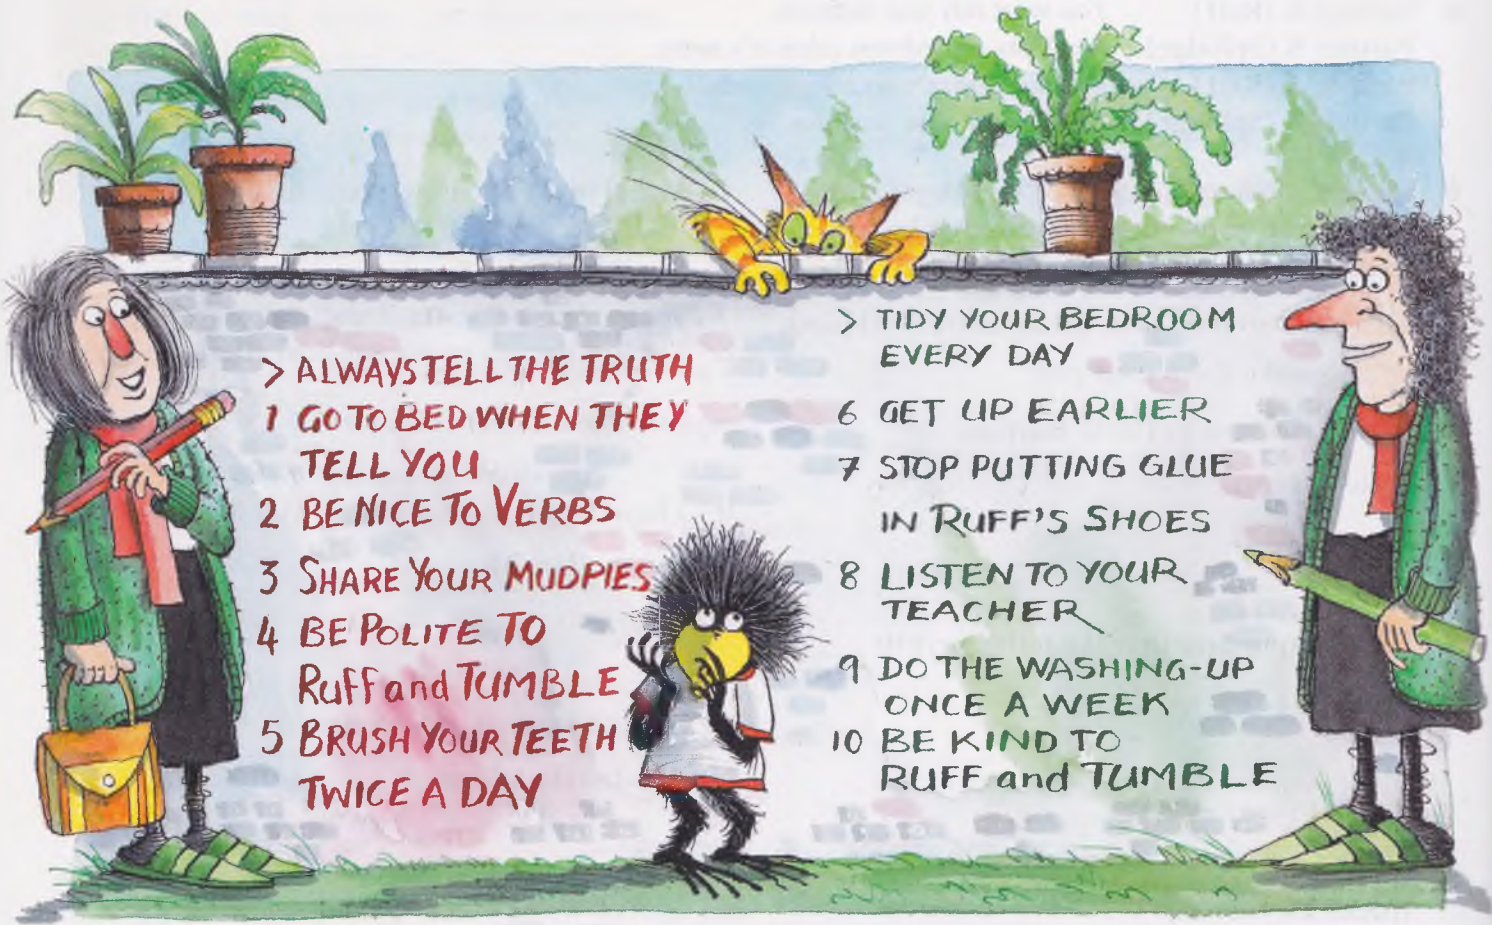 > ALWAYS TELL THE TRUTH
1 GO TO BED WHEN THEY
TELL YOU
2 BE NICE TO VERBS
3 SHARE YOUR MUDPIES
4 BE POLITE TO
RUFF and TUMBLE
5 BRUSH YOUR TEETH
TWICE A DAY
> TIDY YOUR BEDROOM
EVERY DAY
6 GET UP EARLIER
7 STOP PUTTING GLUE
IN RUFF'S SHOES
8 LISTEN TO YOUR
TEACHER
9 DO THE WASHING-UP
ONCE A WEEK
10 BE KIND TO
RUFF and TUMBLE